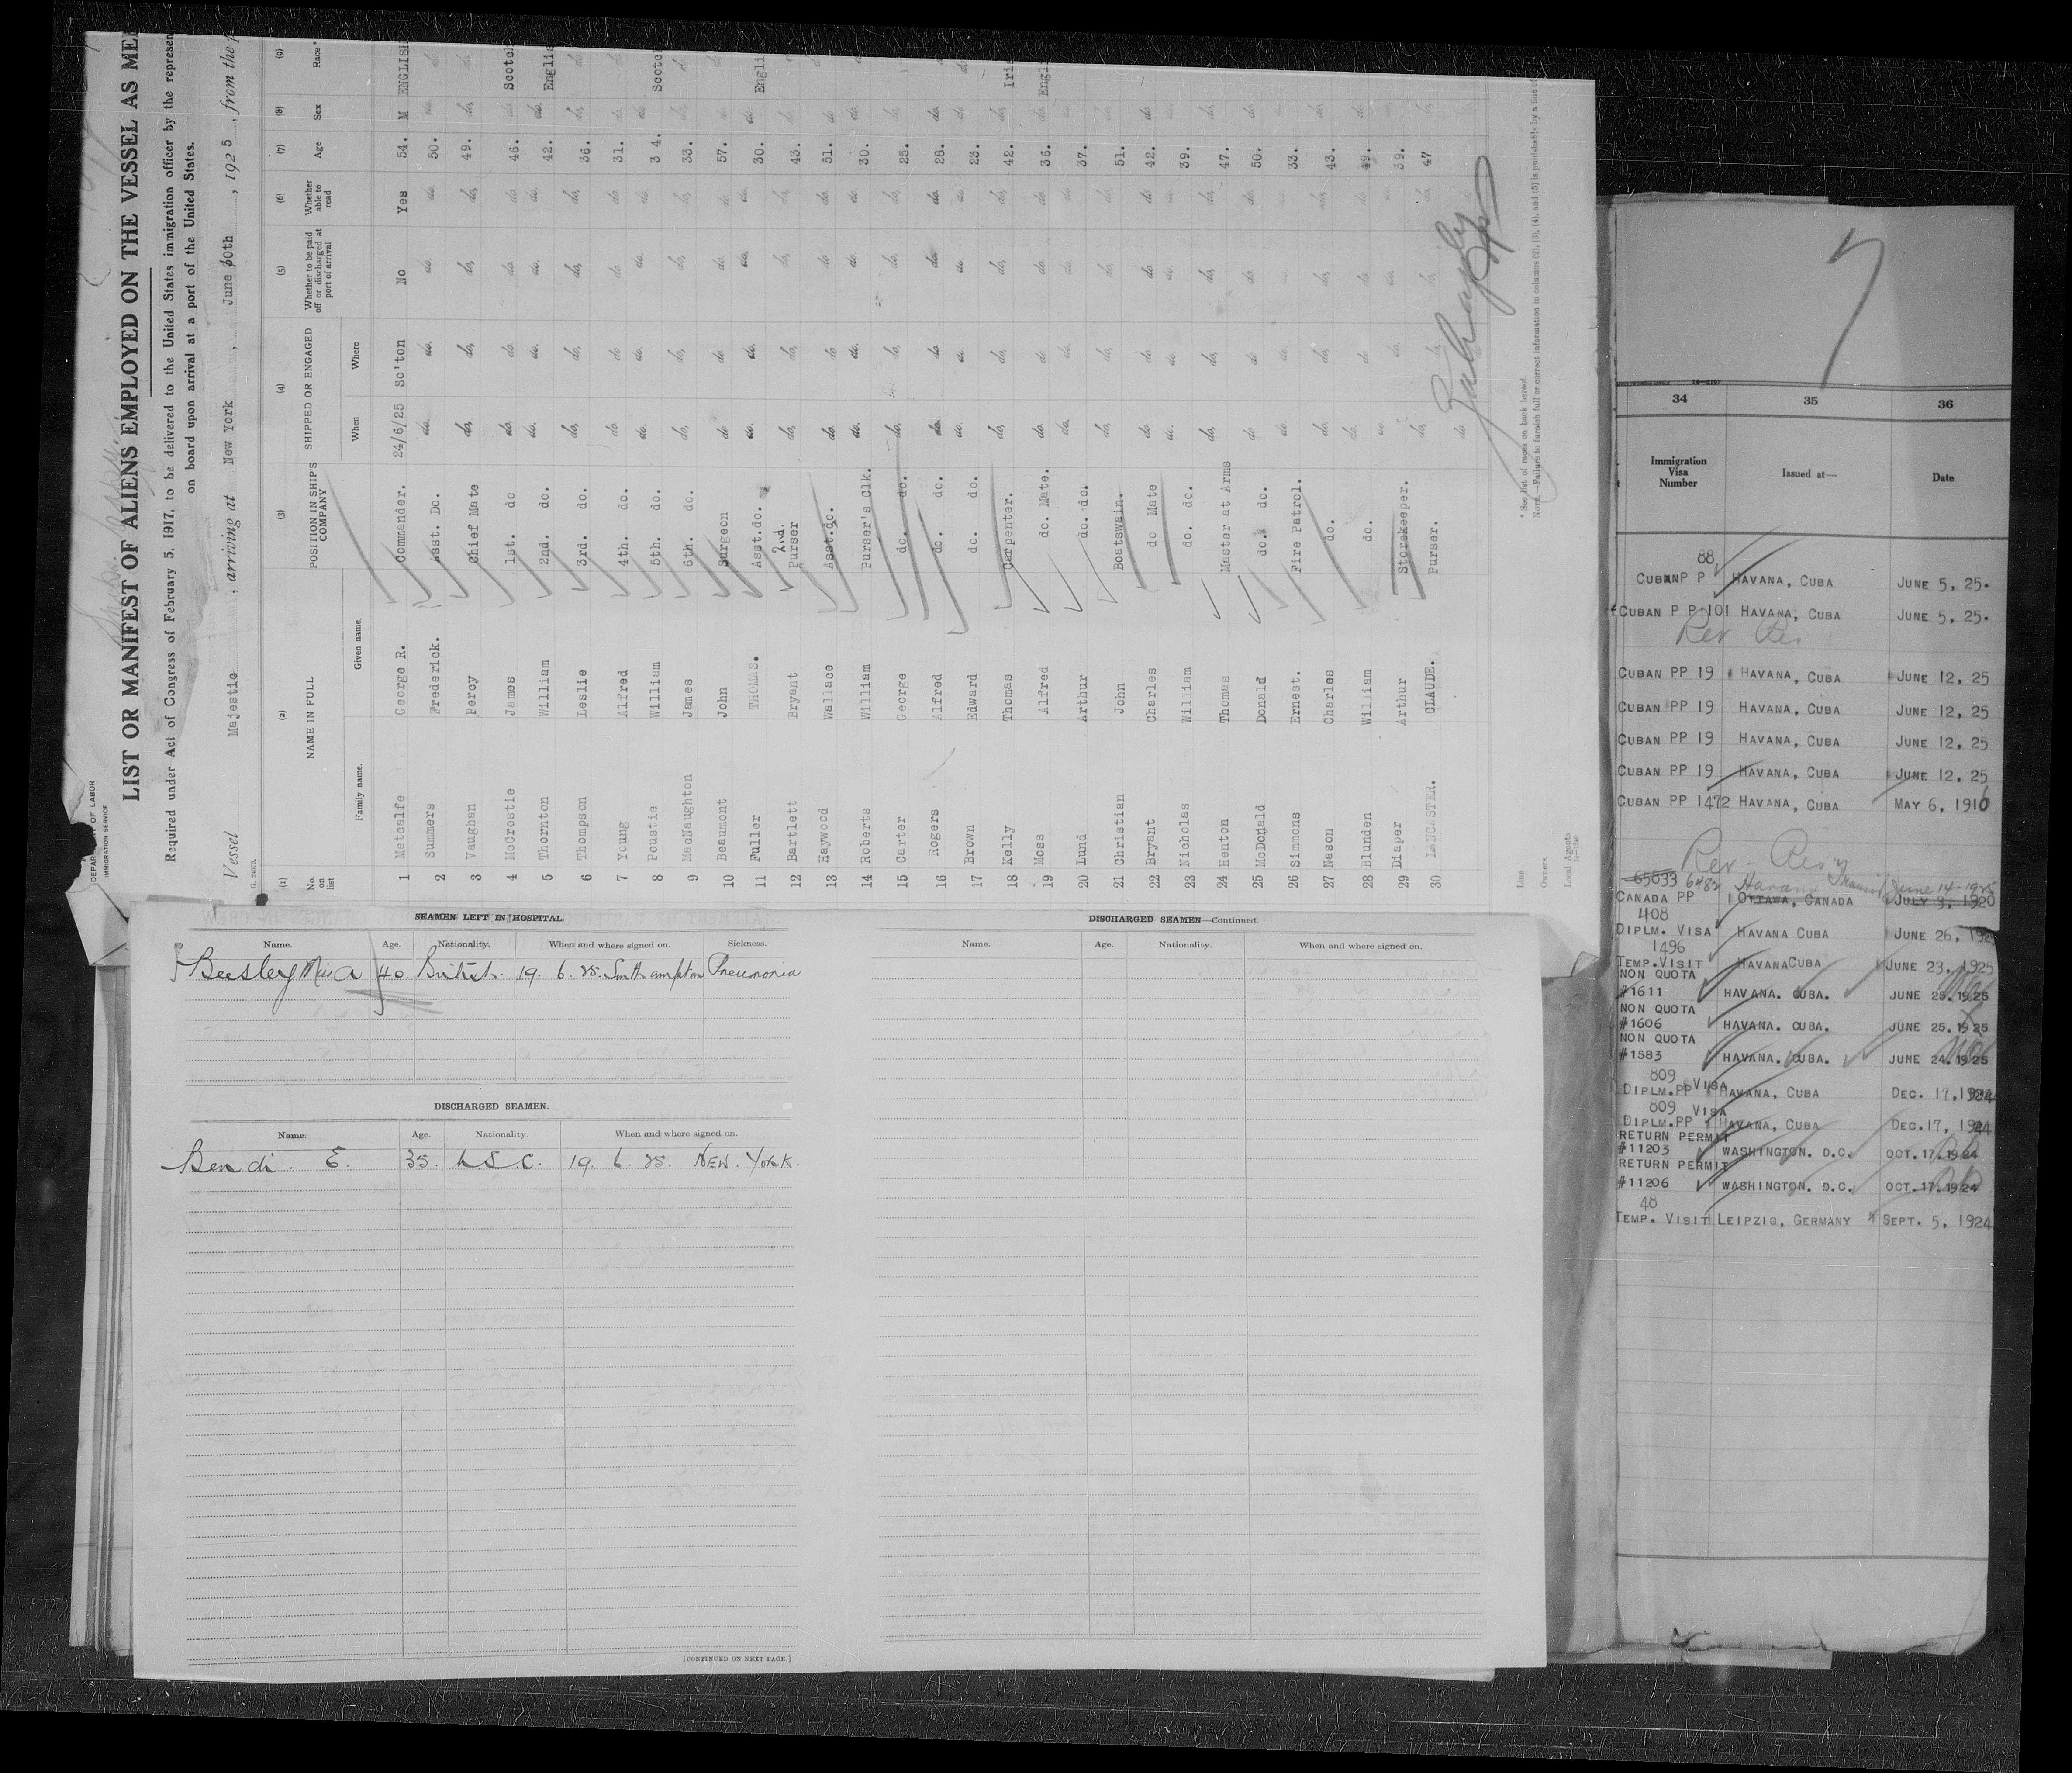 DEPARTMENT OF LABOR
IMMIGRATION SERVICE
LIST OR MANIFEST OF ALIENS EMPLOYED ON THE VESSEL AS ME
Required under Act of Congress of February 5, 1917, to be delivered to the United States immigration officer by the represen
on board upon arrival at a port of the United States.
Vessel Majestic, arriving at New York, June 30th, 1925, from the p
(1) (2) (3) (4) (5) (6) (7) (8) (9)
No. on list NAME IN FULL POSITION IN SHIP'S COMPANY SHIPPED OR ENGAGED Whether to be paid off or discharged at port of arrival Whether able to read Age Sex Race*
Family name. Given name. When Where
1 Metcalfe George R. Commander. 24/6/25 So'ton No Yes 54. M ENGLISH
2 Summers Frederick. Asst. Do. do. do. do. do. 50. do. do
3 Vaughan Percy Chief Mate do. do. do. do. 49. do. do
4 McCrostie James 1st. do do. do do. do 46. do Scotc
5 Thornton William 2nd. do. do. do. do. do. 42. do. Englis
6 Thompson Leslie 3rd. do. do. do. do. do. 36. do. do
7 Young Alfred 4th. do. do do do do. 31. do do
8 Poustie William 5th. do. do. do. do. do. 34. do. Scotc
9 MacNaughton James 6th. do. do. do. do. do. 33. do. do
10 Beaumont John Surgeon do do do. do. 57. do do
11 Fuller THOMAS. Asst.do. do. do. do. do. 30. do. Engli
12 Bartlett Bryant 2nd. Purser do. do. do. do. 43. do. do
13 Haywood Wallace Asst.do. do. do do do. 51. do do
14 Roberts William Purser's Clk. do. do. do. do. 30. do. do
15 Carter George do. do. do. do. do. do. 25. do. do
16 Rogers Alfred do. do. do. do. do. do. 28. do. do
17 Brown Edward do. do. do. do. do. do. 23. do. do
18 Kelly Thomas Carpenter. do. do. do. do. 42. do. Iri
19 Moss Alfred do. Mate. do. do do. do. 36. do. Engl
20 Lund Arthur do. do. do. do. do. do. 37. do.
21 Christian John Boatswain. do. do. do. do. 51. do.
22 Bryant Charles do Mate do do do do 42. do
23 Nicholas William do. do. do. do. do. do. 39. do.
24 Henton Thomas Master at Arms do. do. do. do. 47. do.
25 McDonald Donald do. do. do do do. do. 50. do.
26 Simmons Ernest. Fire Patrol. do. do. do. do. 33. do.
27 Nason Charles do. do. do. do. do. 43. do.
28 Blunden William do. do. do do. do. 49. do.
29 Diaper Arthur Storekeeper. do. do. do. do. 39. do.
30 LANCASTER. CLAUDE. Purser. do. do. do. do. 47 do.
Line
Owners
Local Agents
* See list of races on back hereof.
NOTE.—Failure to furnish full or correct information in columns (2), (3), (4), and (5) is punishable by a fine of
SEAMEN LEFT IN HOSPITAL
Name. Age. Nationality. When and where signed on. Sickness.
Beesley Miss A 40 British. 19. 6. 25. Southampton Pneumonia
DISCHARGED SEAMEN.
Name. Age. Nationality. When and where signed on.
Bendi. E. 35. 19. 6. 25. NEW. YORK.
[CONTINUED ON NEXT PAGE.]
DISCHARGED SEAMEN—Continued.
Name. Age. Nationality. When and where signed on.
34 35 36
Immigration Visa Number Issued at— Date
88
CUBAN P P HAVANA, CUBA JUNE 5, 25.
CUBAN P P 101 HAVANA, CUBA JUNE 5, 25.
Rev Res
CUBAN PP 19 HAVANA, CUBA JUNE 12, 25
CUBAN PP 19 HAVANA, CUBA JUNE 12, 25
CUBAN PP 19 HAVANA, CUBA JUNE 12, 25
CUBAN PP 19 HAVANA, CUBA JUNE 12, 25
CUBAN PP 1472 HAVANA, CUBA MAY 6, 1916
Rev. Res
65833 6482 Havana June 14-1925
CANADA PP OTTAWA, CANADA JULY 3, 1920
408
DIPLM. VISA HAVANA CUBA JUNE 26, 1925
1496
TEMP.VISIT HAVANA CUBA JUNE 23, 1925
NON QUOTA
#1611 HAVANA. CUBA. JUNE 25.1925
NON QUOTA
#1606 HAVANA. CUBA. JUNE 25.1925
NON QUOTA
#1583 HAVANA. CUBA. JUNE 24.1925
809 VISA
DIPLM.PP HAVANA, CUBA DEC. 17, 1924
809 VISA
DIPLM.PP HAVANA, CUBA DEC.17, 1924
RETURN PERMIT
#11203 WASHINGTON. D.C. OCT.17.1924
RETURN PERMIT
#11206 WASHINGTON. D.C. OCT.17.1924
48
TEMP. VISIT LEIPZIG, GERMANY SEPT. 5, 1924